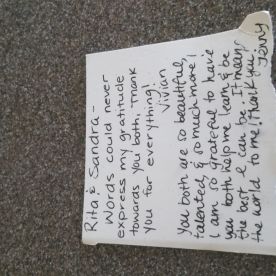 Rita & Sandra -
Words could never
express my gratitude
towards you both. Thank
you for everything!
Vivian
You both are so beautiful,
talented & so much more!
I am so grateful to have
you both help me learn & be
the best I can be. It means
the world to me! Thank you!
Jenny